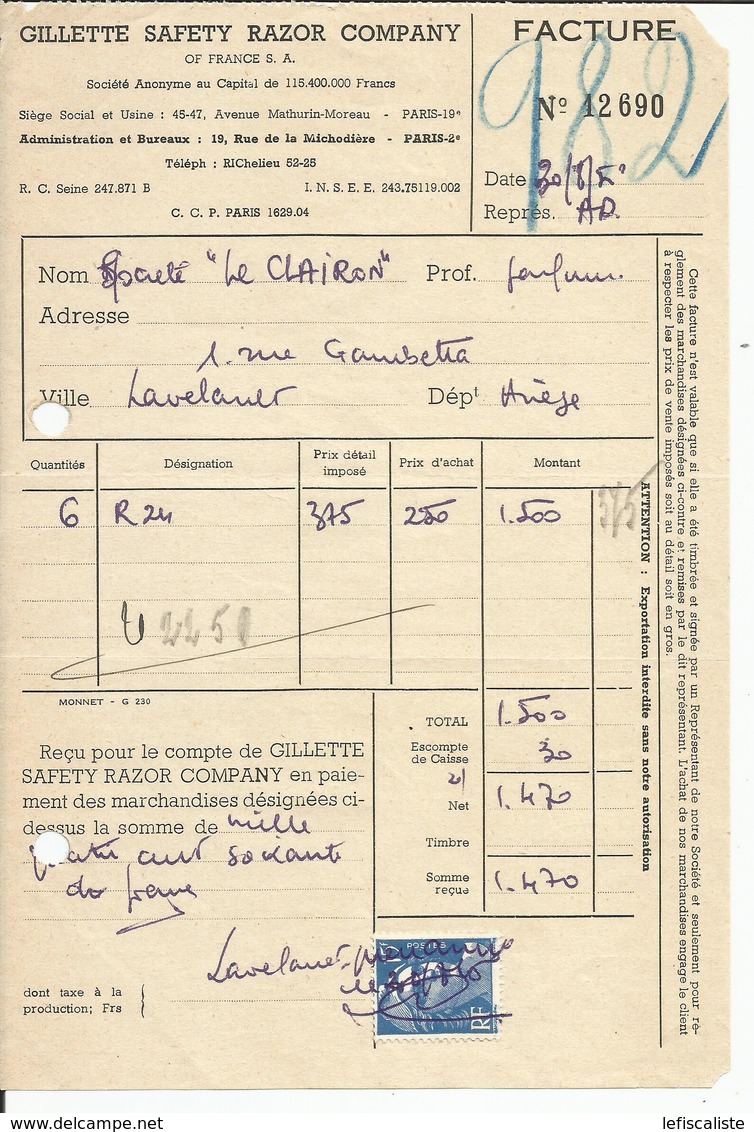 GILLETTE SAFETY RAZOR COMPANY
OF FRANCE S. A.
Société Anonyme au Capital de 115.400.000 Francs
Siège Social et Usine : 45-47, Avenue Mathurin-Moreau - PARIS-19e
Administration et Bureaux : 19, Rue de la Michodière - PARIS-2e
Téléph : RIChelieu 52-25
R. C. Seine 247.871 B I. N. S. E. E. 243.75119.002
C. C. P. PARIS 1629.04
FACTURE
982
No 12690
Date
Représ. AD.
Nom Société "Le CLAIRON" Prof.
Adresse
1. rue Gambetta
Ville Lavelanet Dépt Ariège
Quantités Désignation Prix détail imposé Prix d'achat Montant
6 R 24 375 250 1.500 375
2250
MONNET - G 230
TOTAL 1.500
Escompte de Caisse 30
Net 1.470
Timbre
Somme reçue 1.470
Reçu pour le compte de GILLETTE
SAFETY RAZOR COMPANY en paie-
ment des marchandises désignées ci-
dessus la somme de mille
quatre cent soixante
Lavelanet
dont taxe à la
production; Frs
POSTES
RF
ATTENTION : Exportation interdite sans notre autorisation
Cette facture n'est valable que si elle a été timbrée et signée par un Représentant de notre Société et seulement pour rè-
glement des marchandises désignées ci-contre et remises par le dit représentant. L'achat de nos marchandises engage le client
à respecter les prix de vente imposés soit au détail soit en gros.
delcampe.net
lefiscaliste